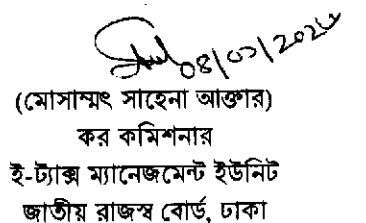 08/03/2026
(মোসাম্মৎ সাহেনা আক্তার)
কর কমিশনার
ই-ট্যাক্স ম্যানেজমেন্ট ইউনিট
জাতীয় রাজস্ব বোর্ড, ঢাকা